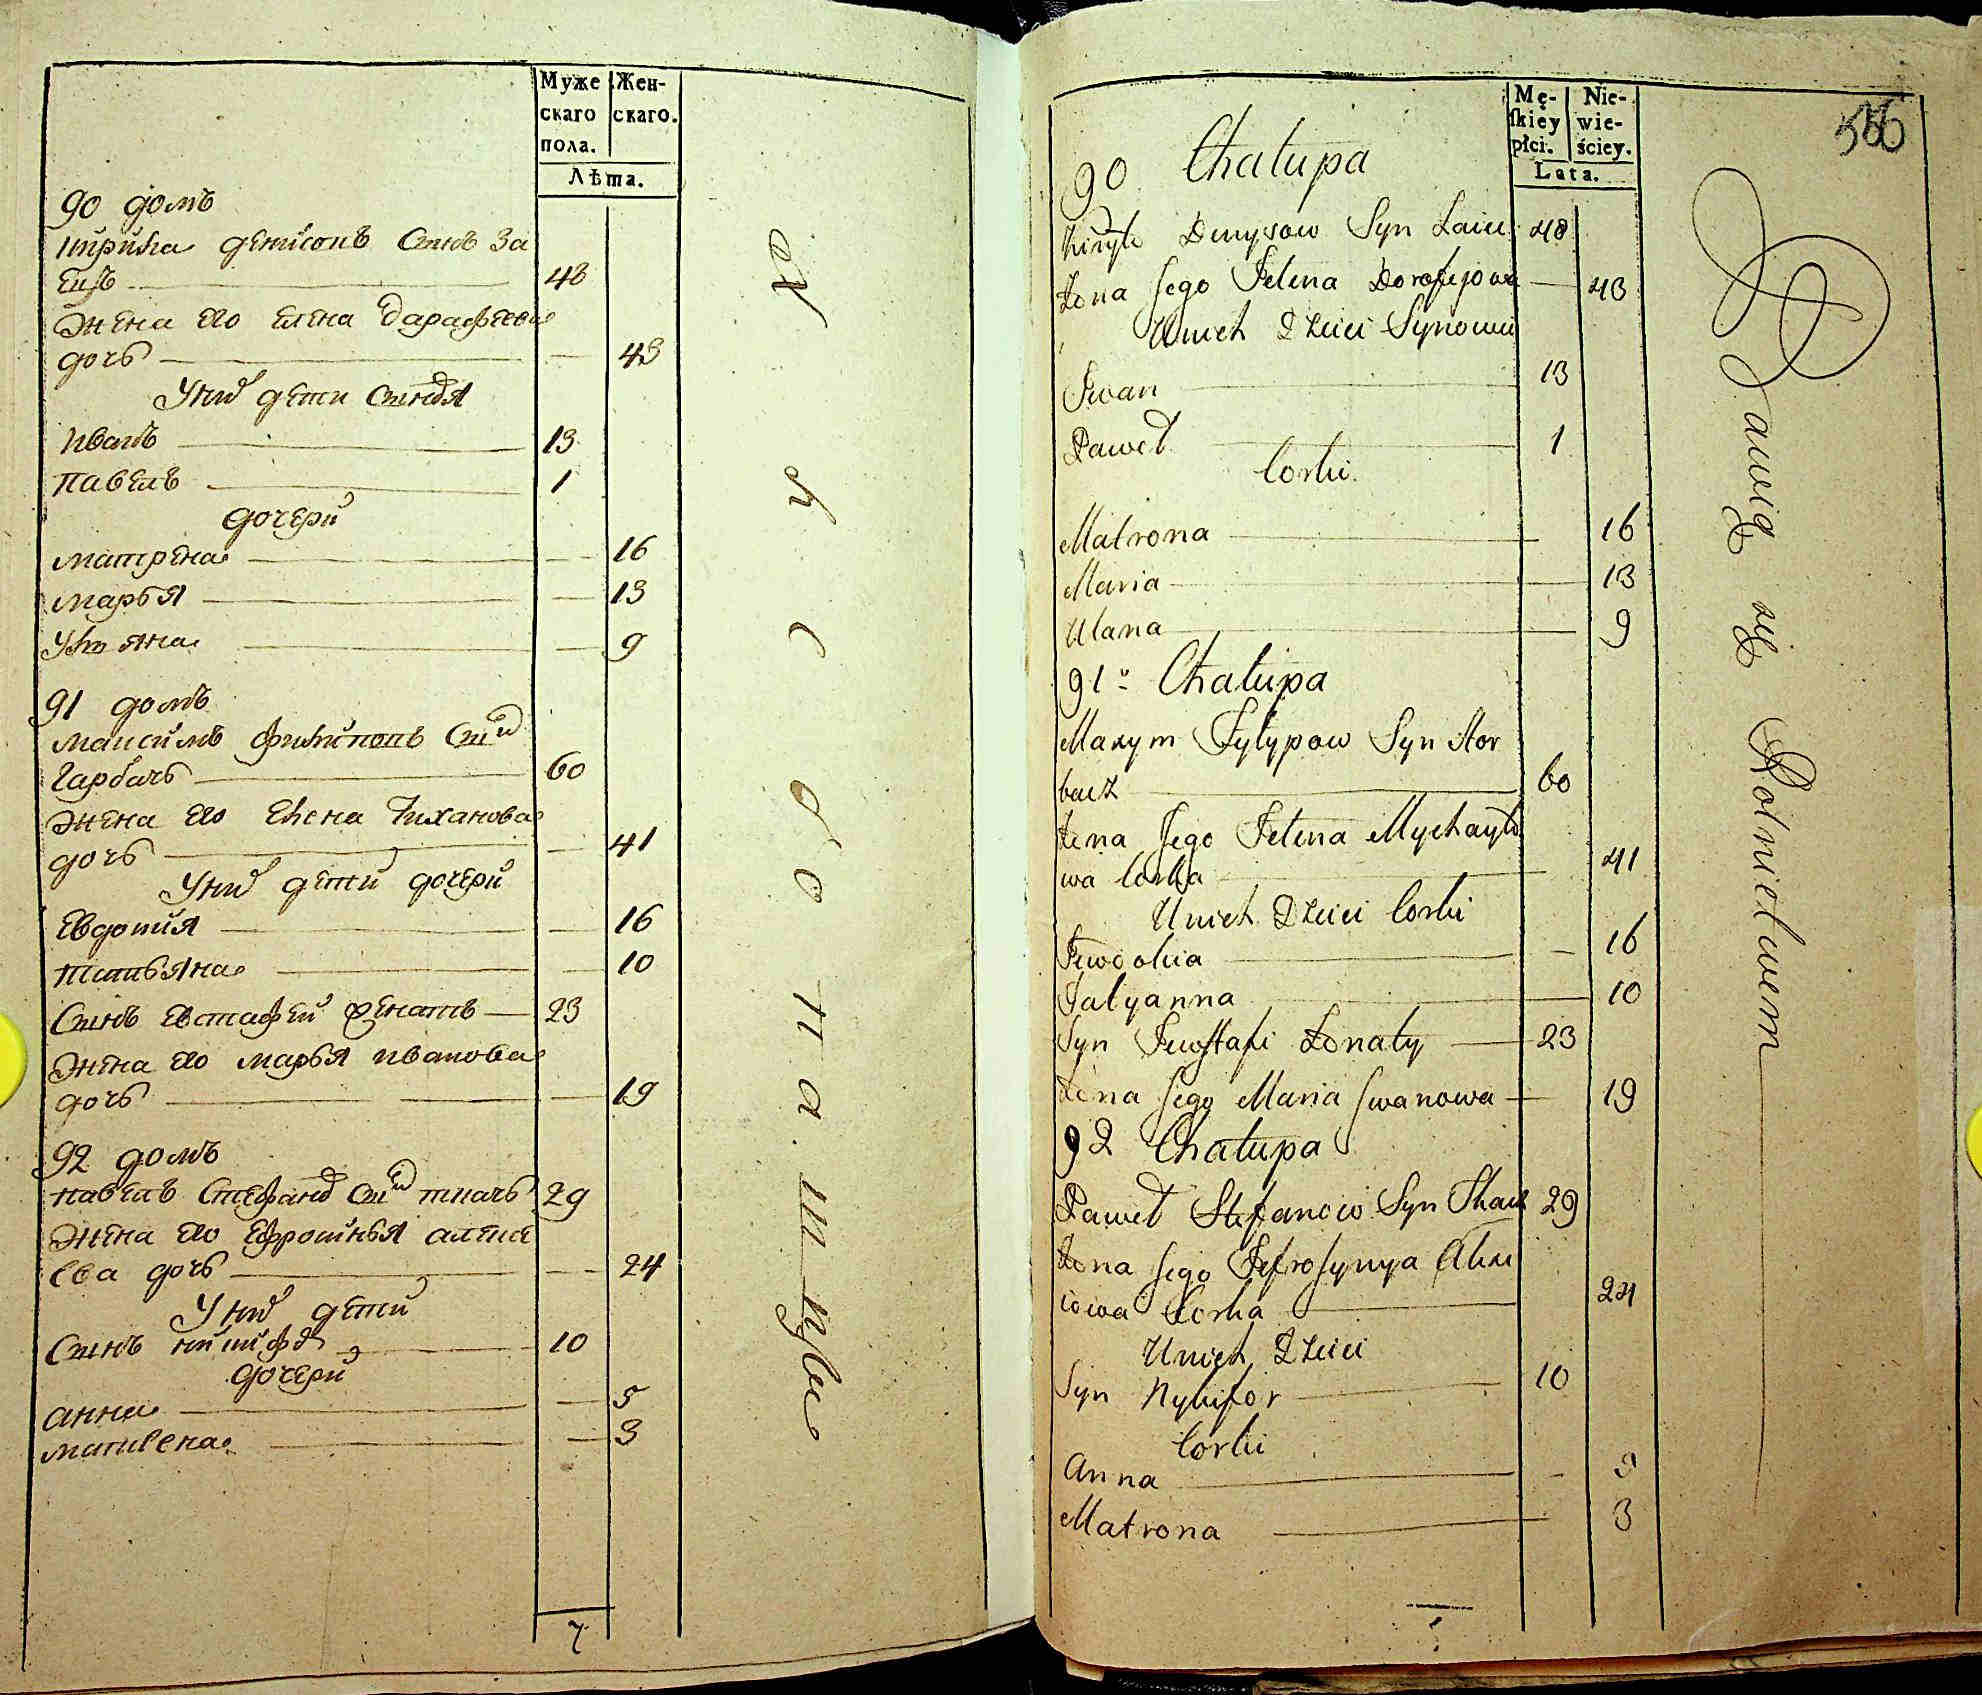 Муже
скаго
пола.
Жен-
скаго.
Лѣта.
90 домъ
Кирила денисовъ Синъ За
ецъ 48
Жена Его Елена Дарафеева
дочь 43
У них дети Синовя
Иванъ 13
Павелъ 1
дочери
матрена 16
марья 13
Ульяна 9
91 домъ
максимъ филиповъ Син
Гарбачь 60
жена Его Елена Тиханова
дочь 41
У них дети дочери
Евдокия 16
татьяна 10
Синъ Евстафей женатъ 23
жена Его марья иванова
дочь 19
92 домъ
павелъ Стефанов Син ткачь 29
жена Его Ефросинья алексе
ева дочь 24
У них дети
Синъ никифор 10
дочери
анна 5
матрена 3
7
Хлебопашнцы
586
Mę-
ſkiey
płci.
Nie-
wie-
ściey.
Lata.
90 Chałupa
Kiryło Denysow Syn Zaiec 48
Zona Jego Jelena Dorofejowa 43
U nich Dzieci Synowie
Iwan 13
Paweł 1
Corki
Matrona 16
Maria 13
Ulana 9
91 Chałupa
Maxym Fyłypow Syn Hor
bacz 60
Zona Jego Jelena Mychayło
wa Corka 41
U nich Dzieci Corki
Jewdokia 16
Tatyanna 10
Syn Jewstafi Zonaty 23
Zona Jego Maria Iwanowa 19
92 Chałupa
Paweł Stefanow Syn Tkacz 29
Zona Jego Jefrosynya Alexi
iowa Corka 24
U nich Dzieci
Syn Nykifor 10
Corki
Anna 5
Matrona 3
Bawią się Rolnictwem